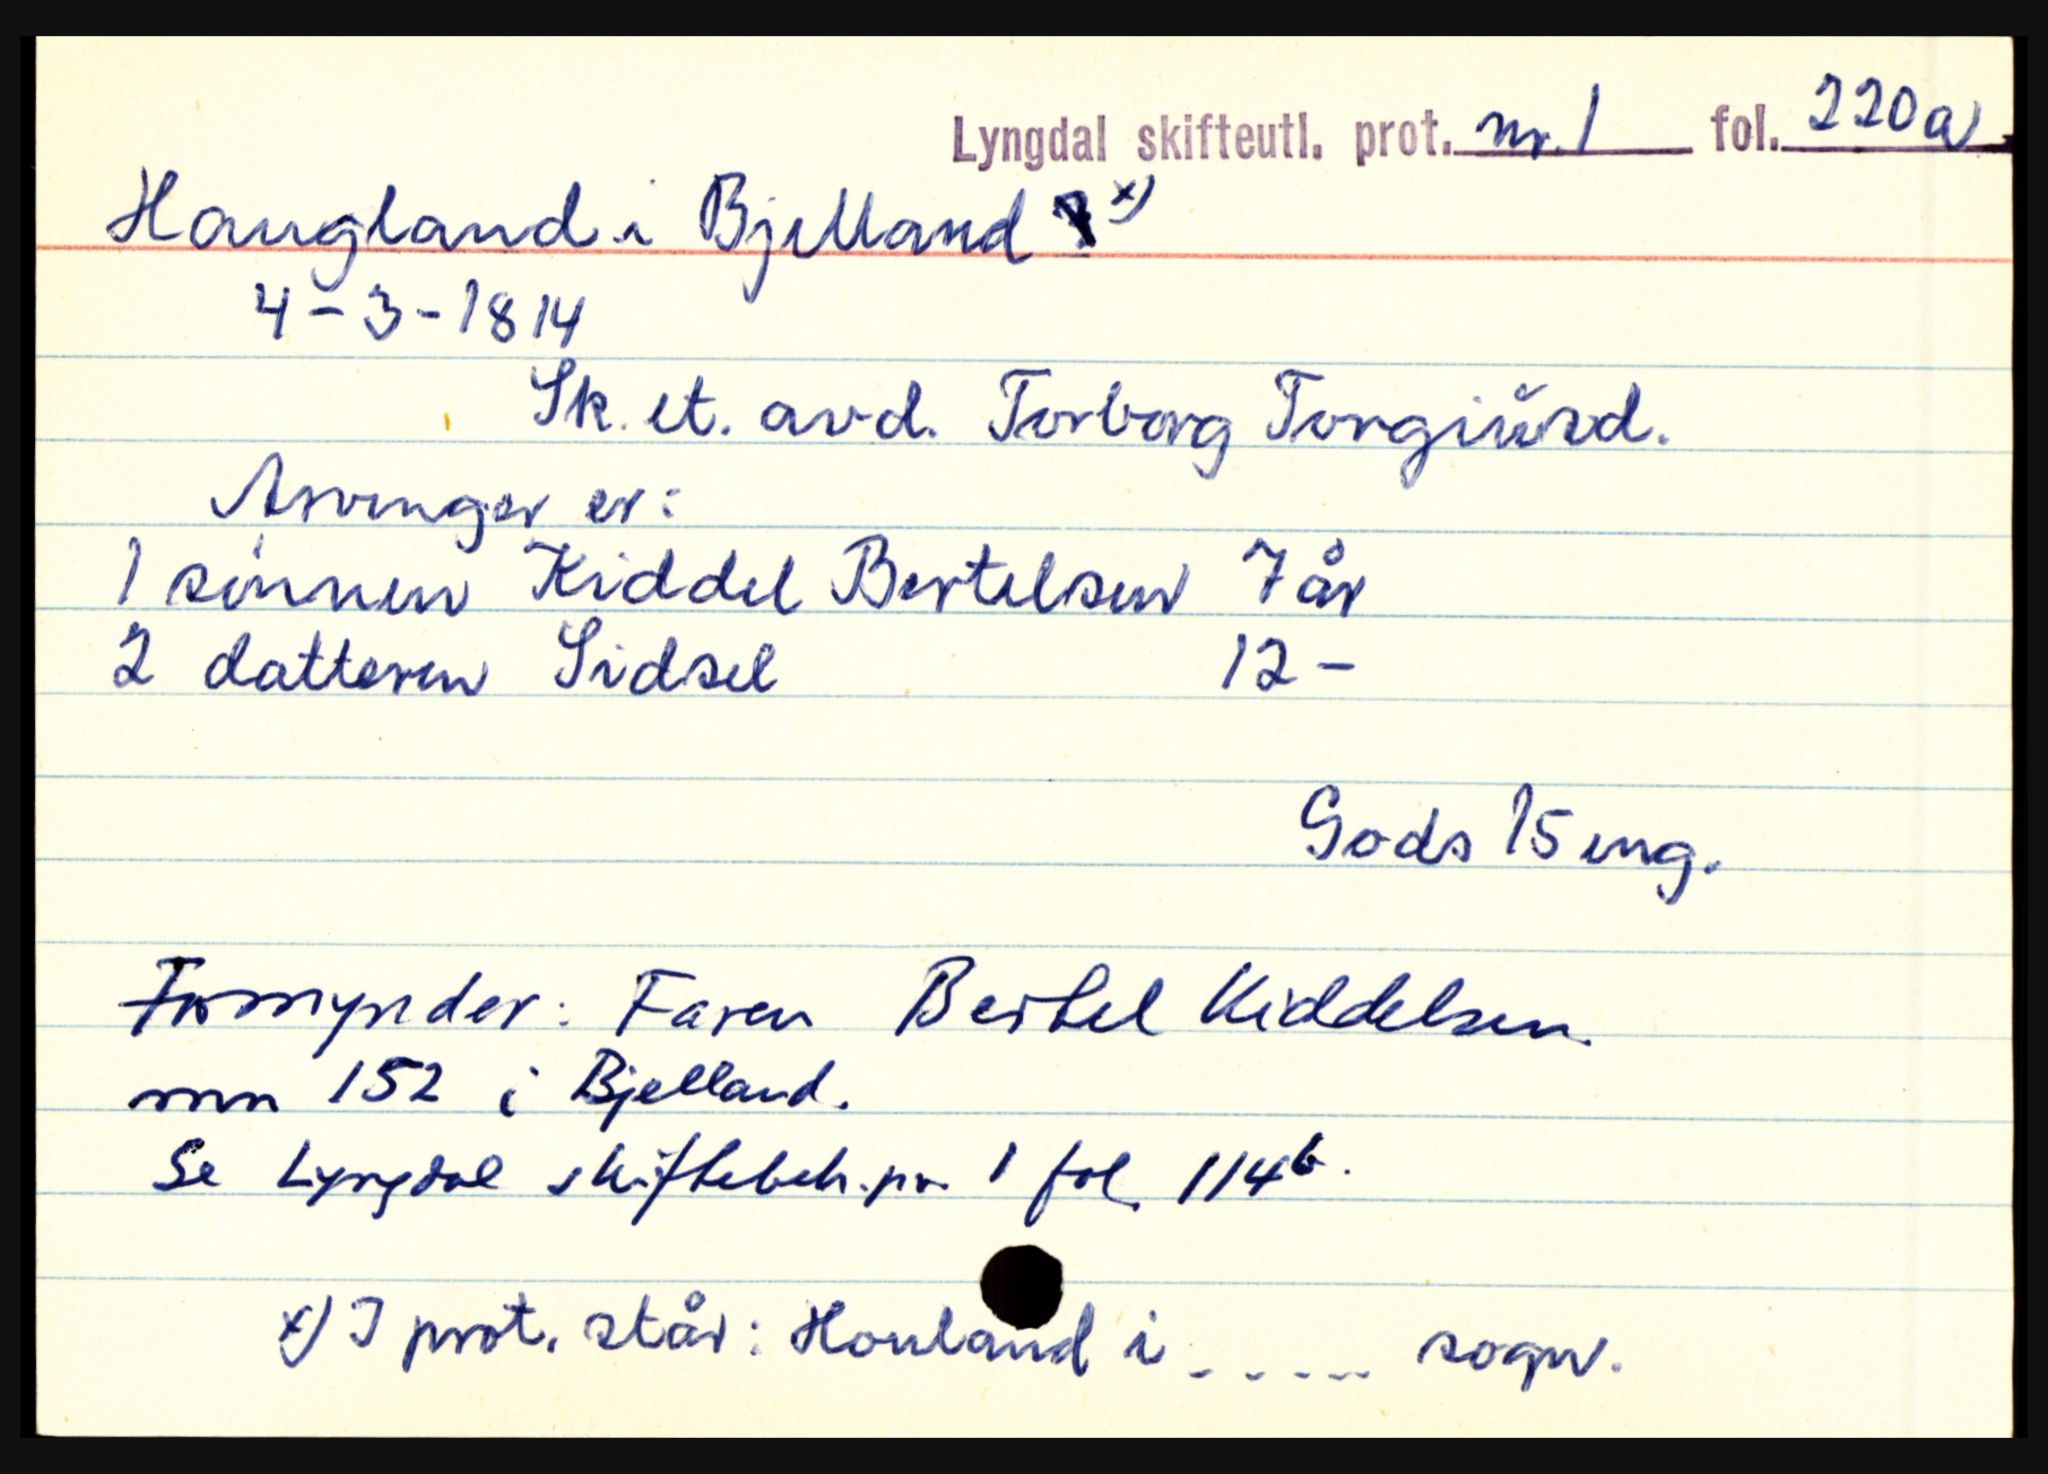 Lyngdal skifteutl. prot. nr. 1 fol. 220a
Haugland i Bjelland ? x)
4-3-1814
Sk. et. avd. Torborg Torgiusd.
Arvinger er:
1 sønnen Kiddel Bertelsen 7 år
2 datteren Sidsel 12 -
Gods 15 eng.
Formynder: Faren Bertel Kiddelsen
mn 152 i Bjelland.
Se Lyngdal skiftebeh.pr. 1 fol. 114b.
x) I prot. står: Houland i - - - - - sogn.